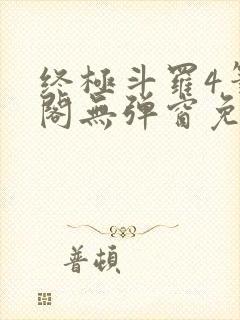 终極斗羅4
閣無弹窗免
普頓